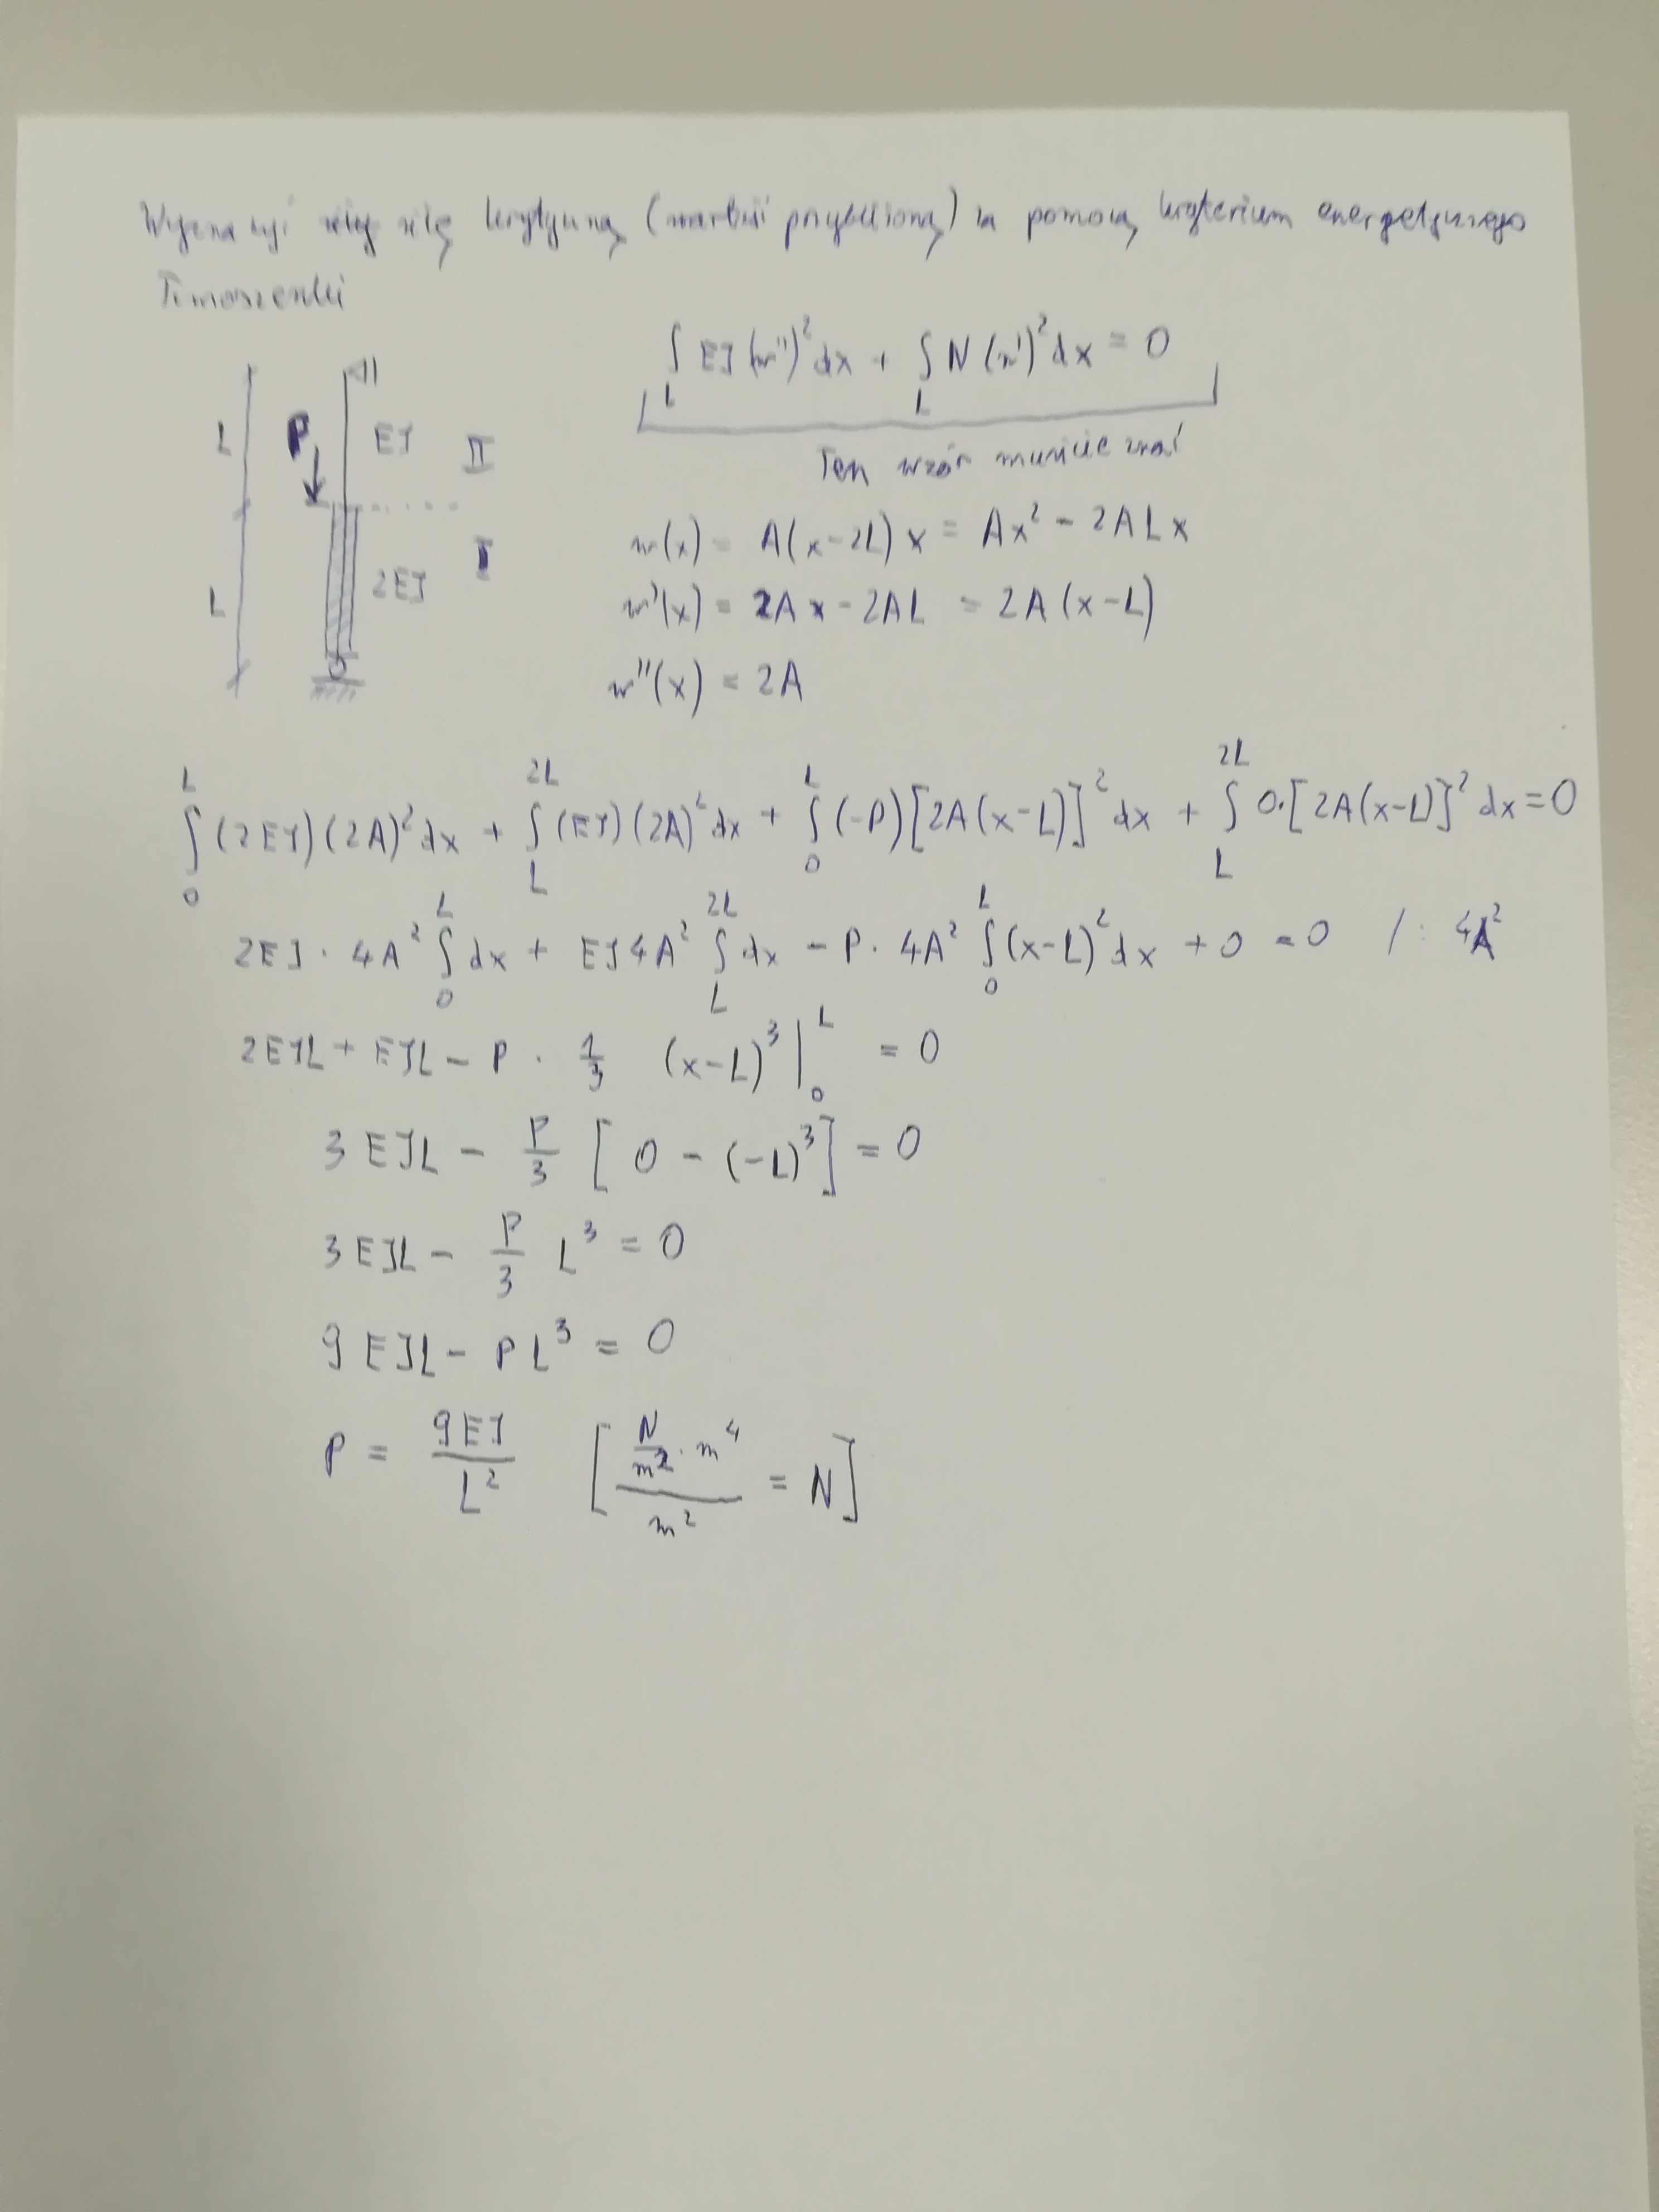 Wyznaczyć siłę krytyczną (wartość przybliżoną) za pomocą kryterium energetycznego
Timoszenki
∫_L EJ(w'')² dx + ∫_L N(w')² dx = 0
Ten wzór musicie znać
L P EJ II
L 2EJ I
w(x) = A(x-2L)x = Ax² - 2ALx
w'(x) = 2Ax - 2AL = 2A(x-L)
w''(x) = 2A
∫₀^L (2EJ)(2A)² dx + ∫_L^2L (EJ)(2A)² dx + ∫₀^L (-P)[2A(x-L)]² dx + ∫_L^2L 0·[2A(x-L)]² dx = 0
2EJ · 4A² ∫₀^L dx + EJ4A² ∫_L^2L dx - P · 4A² ∫₀^L (x-L)² dx + 0 = 0 / : 4A²
2EJL + EJL - P · 1/3 (x-L)³ |₀^L = 0
3EJL - P/3 [0 - (-L)³] = 0
3EJL - P/3 L³ = 0
9EJL - PL³ = 0
P = 9EJ/L² [(N/m² · m⁴)/m² = N]